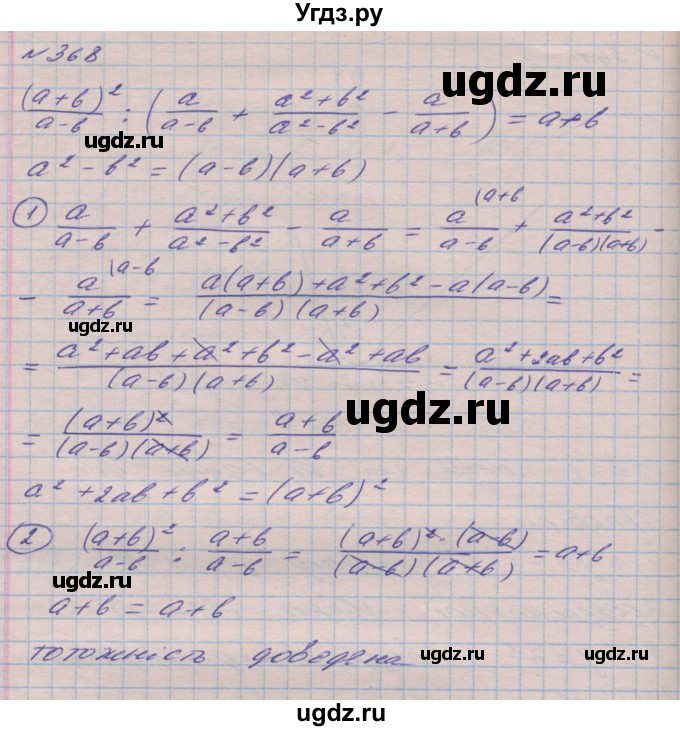 Угдз.ру
№368
(a+b)²/(a-b) : (a/(a-b) + (a²+b²)/(a²-b²) - a/(a+b)) = a+b
ugdz.ru
ugdz.ru
a² - b² = (a-b)(a+b)
① a/(a-b) + (a²+b²)/(a²-b²) - a/(a+b) = a/(a-b) (a+b + (a²+b²)/((a-b)(a+b)) -
- a/(a+b) (a-b = (a(a+b)+a²+b²-a(a-b))/((a-b)(a+b)) =
ugdz.ru
= (a²+ab+a²+b²-a²+ab)/((a-b)(a+b)) = (a²+2ab+b²)/((a-b)(a+b)) =
ugdz.ru
= (a+b)²/((a-b)(a+b)) = (a+b)/(a-b)
a²+2ab+b² = (a+b)²
② (a+b)²/(a-b) : (a+b)/(a-b) = ((a+b)²·(a-b))/((a-b)(a+b)) = a+b
ugdz.ru
ugdz.ru
a+b = a+b
тотожність доведена
ugdz.ru
ugdz.ru
ugdz.ru